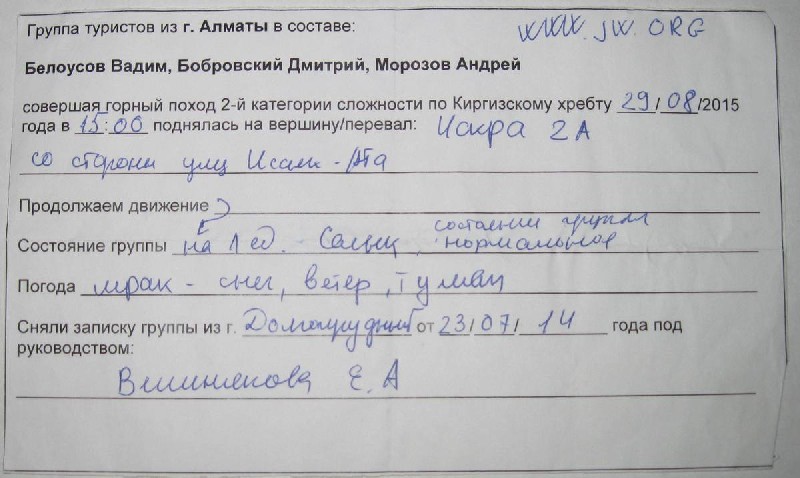 Группа туристов из г. Алматы в составе: www.jw.ORG
Белоусов Вадим, Бобровский Дмитрий, Морозов Андрей
совершая горный поход 2-й категории сложности по Киргизскому хребту 29/08/2015
года в 15:00 поднялась на вершину/перевал: Искра 2А
со стороны ущ Исык-Ата
Продолжаем движение
Состояние группы на лед. Салык, состояние группы нормальное
Погода мрак - снег, ветер, туман
Сняли записку группы из г. Долгопрудный от 23/07/14 года под
руководством:
Вишнякова Е.А